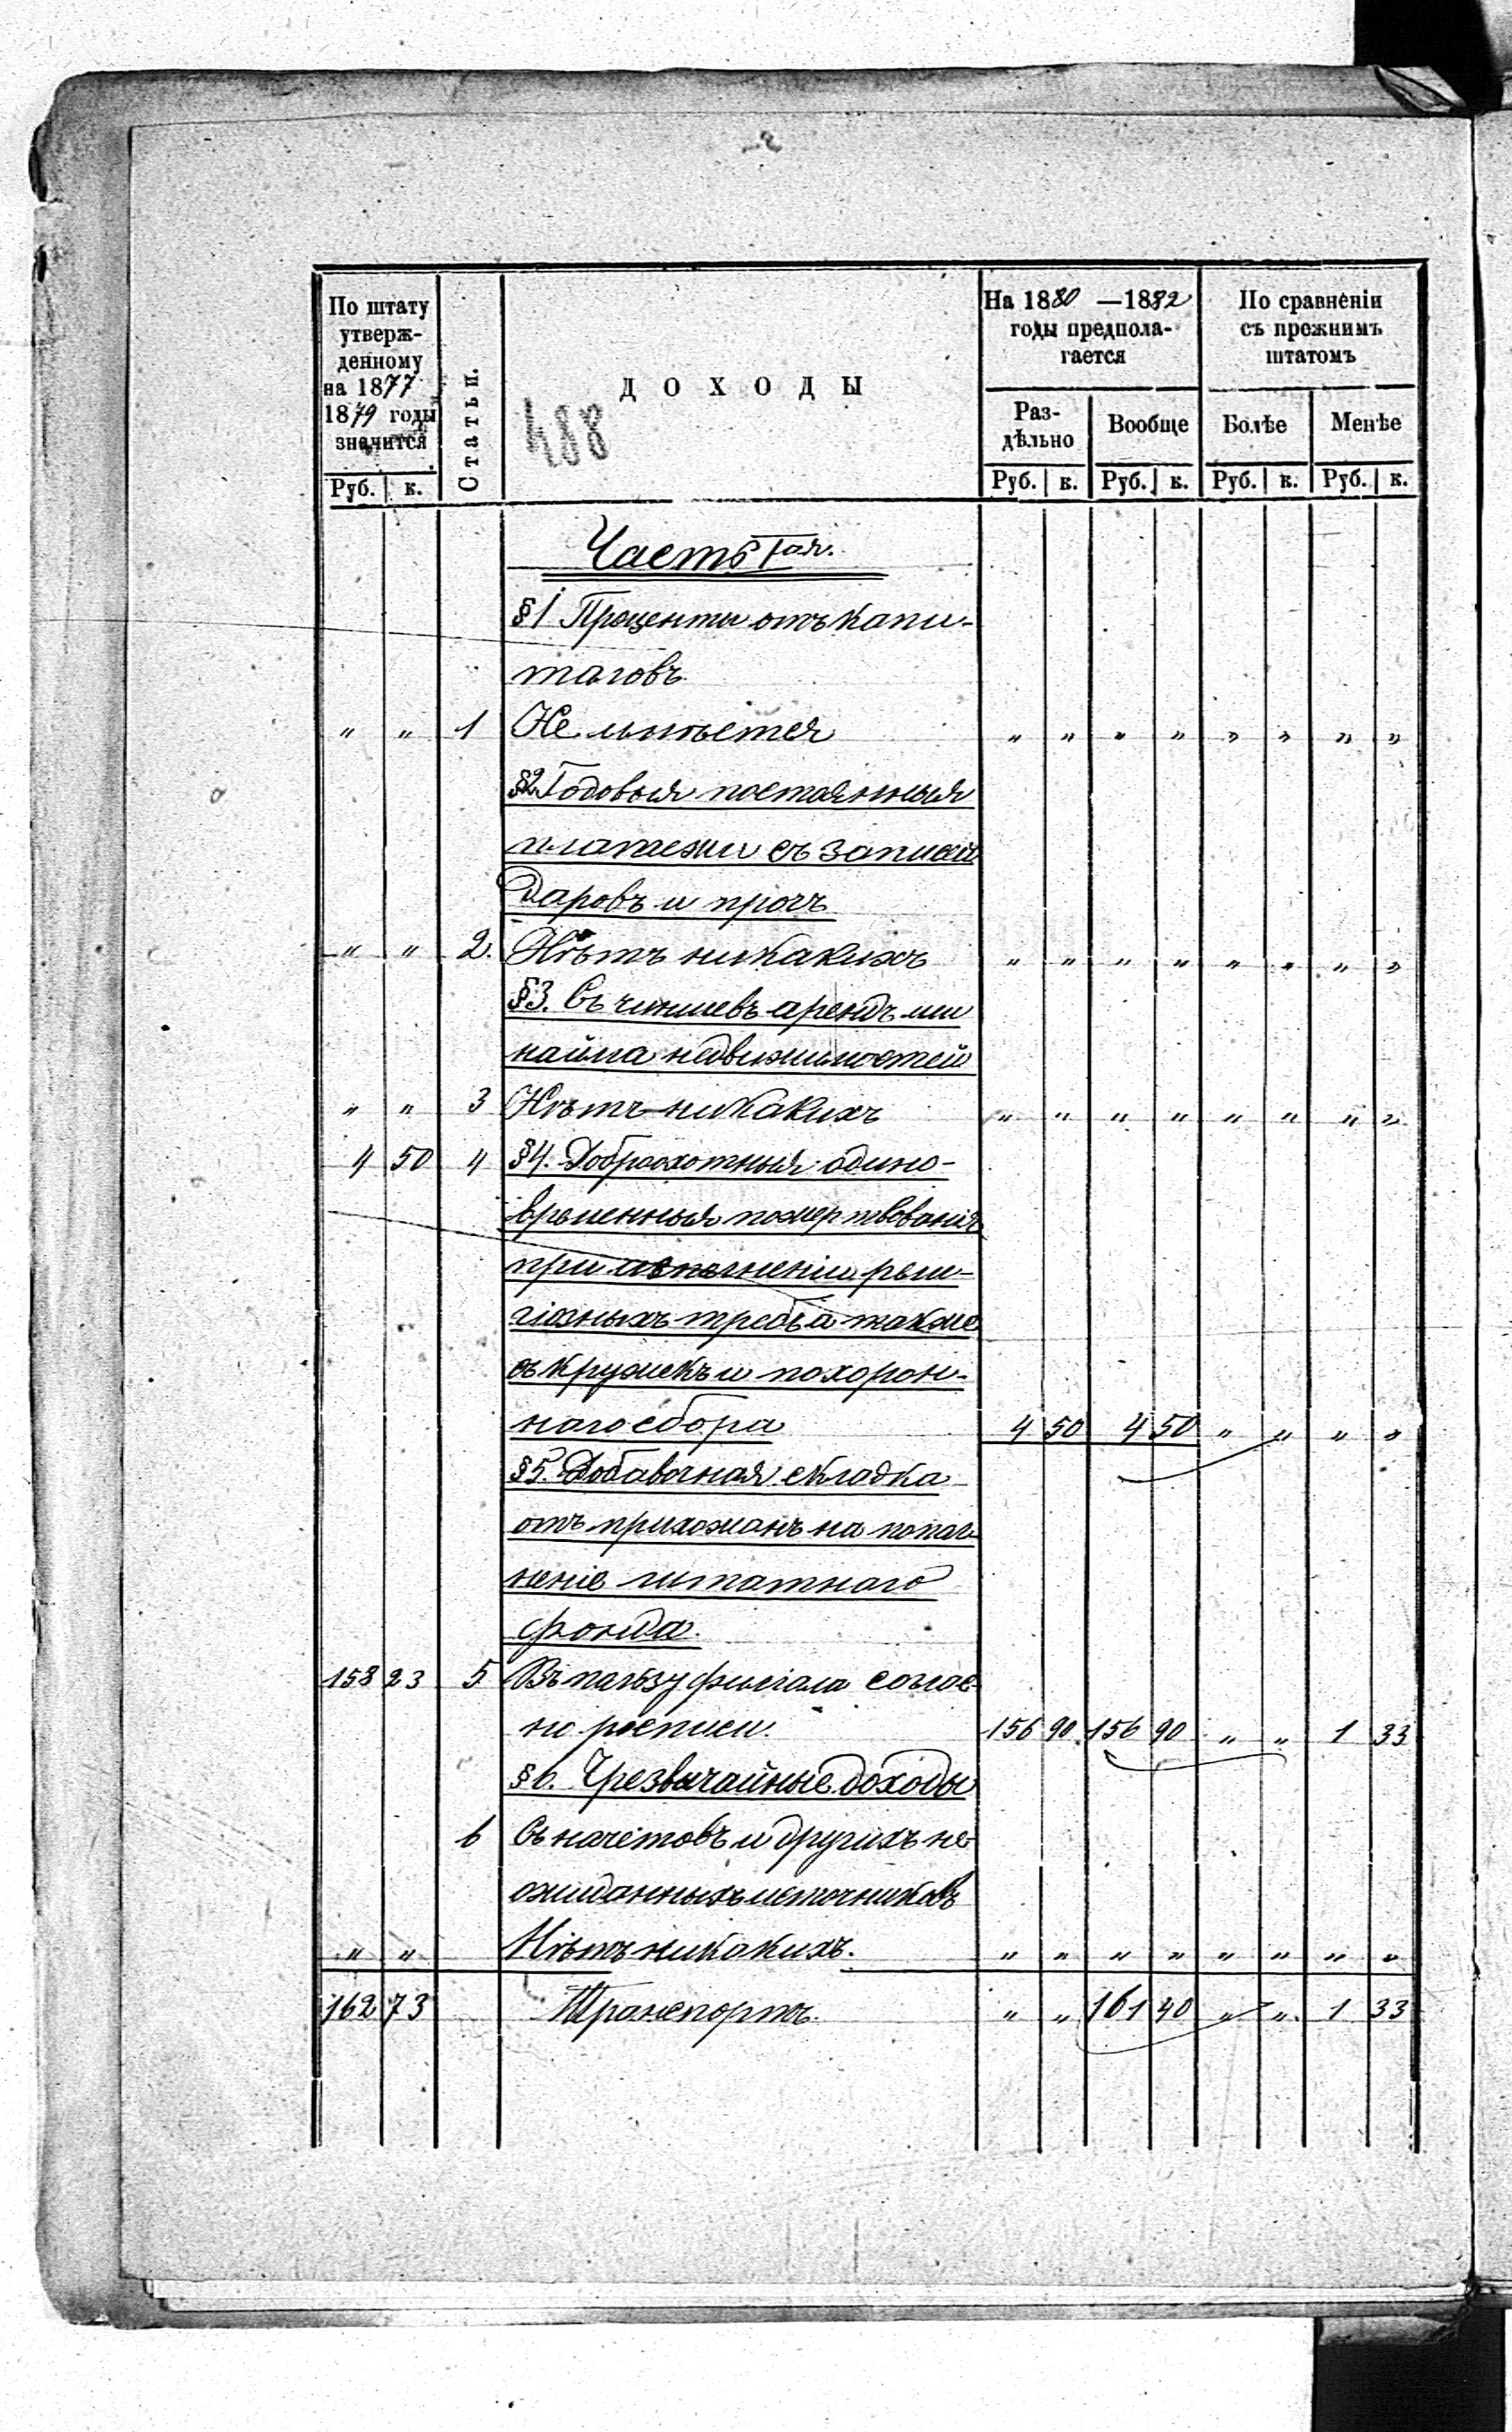 По штату
утверж-
денному
на 1877
1879 годы
значится
Статьи.
ДОХОДЫ
488
На 1880 —1882
годы предпола-
гается
По сравненіи
съ прежнимъ
штатомъ
Раз-
дѣльно
Вообще
Болѣе
Менѣе
Руб. к.
Руб. к. Руб. к. Руб. к. Руб. к.
Часть Iая.
§1 Проценты отъ капи-
таловъ
" " 1 Не имѣется " " " " " " " "
§2. Годовыя постоянныя
платежи съ записей
даровъ и прочъ
" " 2. Нѣтъ никакихъ " " " " " " " "
§3. Съ чиншевъ арендъ или
найма недвижимостей
" " 3 Нѣтъ никакихъ " " " " " " " "
4 50 4 §4. Доброохотныя одино-
временныя пожертвованія
при исполненіи рели-
гіозныхъ требъ а также
съ кружекъ и похорон-
наго сбора 4 50 4 50 " " " "
§5. Добавочная складка
отъ прихожанъ на попол-
неніе штатнаго
фонда.
158 23 5 Въ пользу филіала соглас-
но росписи. 156 90 156 90 " " 1 33
§6. Чрезвычайные доходы
6 Съ начетовъ и другихъ не-
ожиданныхъ источниковъ
" " Нѣтъ никакихъ. " " " " " " " "
162 73 Транспортъ. " " 161 40 " " 1 33